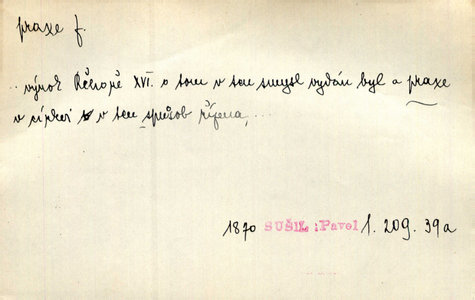 praxe f.
.. výrok Řehoře XVI. o tom v ten smysl vydán byl a praxe
v církvi v ten spůsob řízena, ...
1870 SUŠIL: Pavel 1. 209. 39a